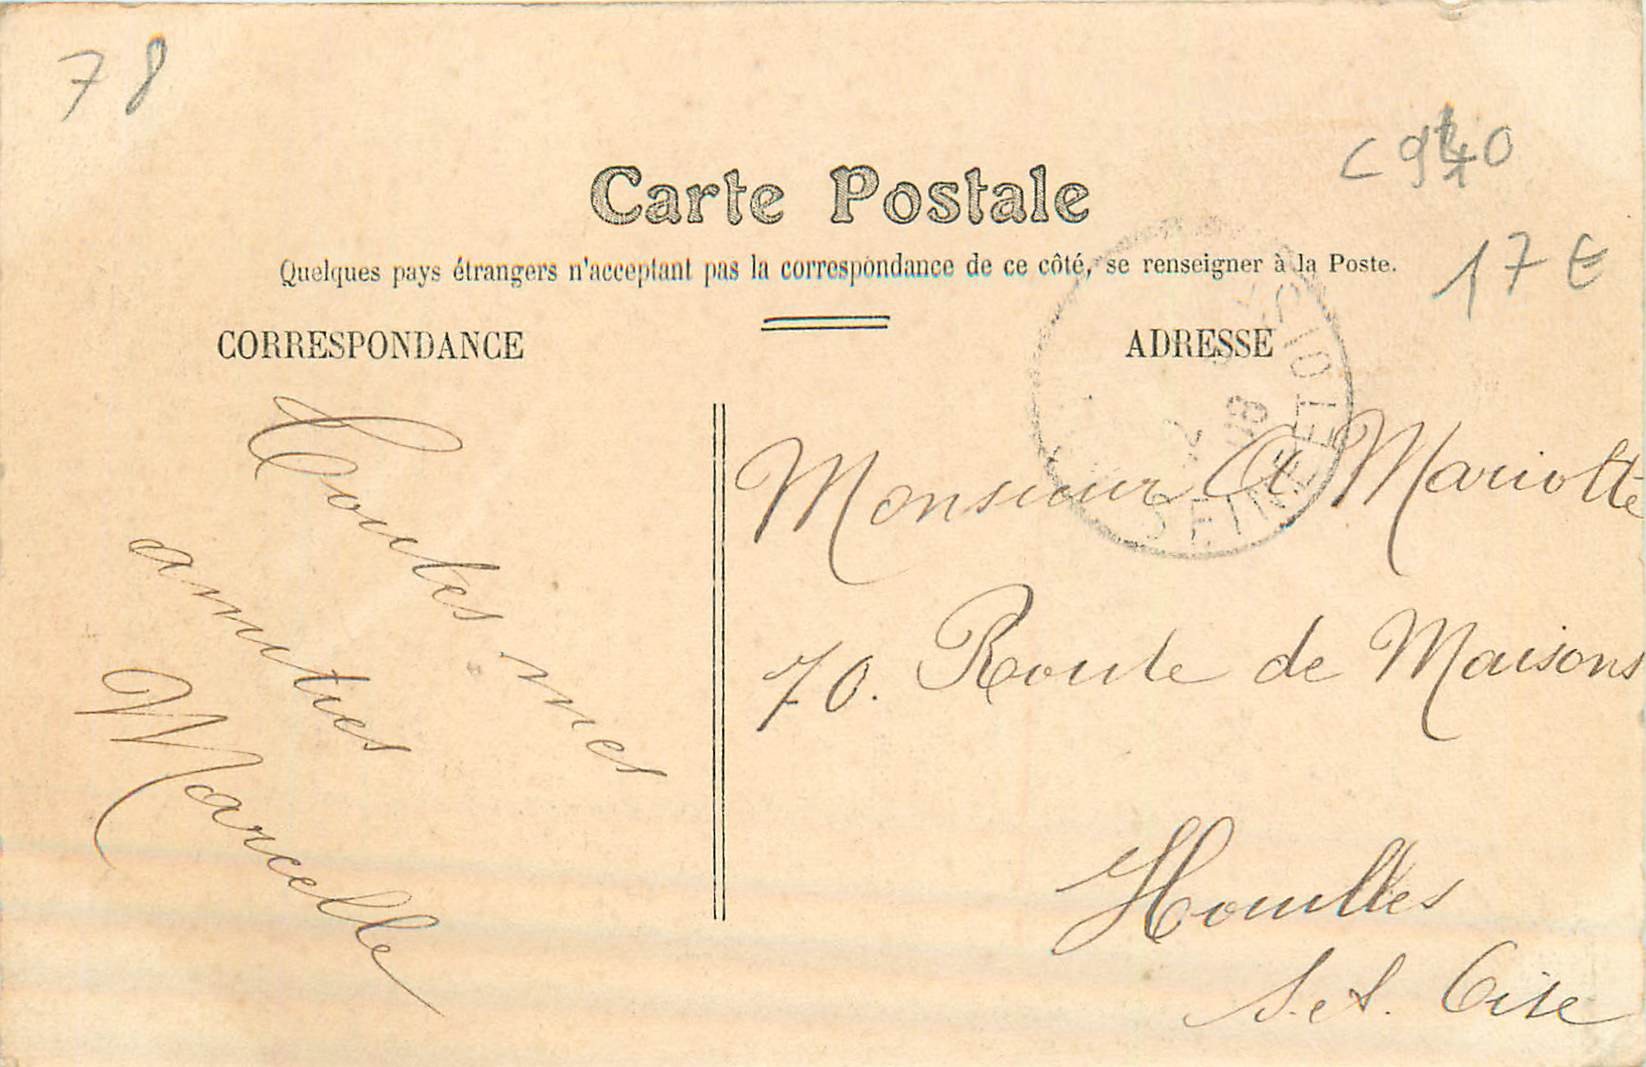 78
C 940
Carte Postale
17 €
Quelques pays étrangers n'acceptent pas la correspondance de ce côté, se renseigner à la Poste.
CORRESPONDANCE
ADRESSE
SEINE ET OISE
2
08
Toutes mes
amitiés
Marcelle
Monsieur A Mariotte
70. Route de Maisons
Houilles
S. et. Oise